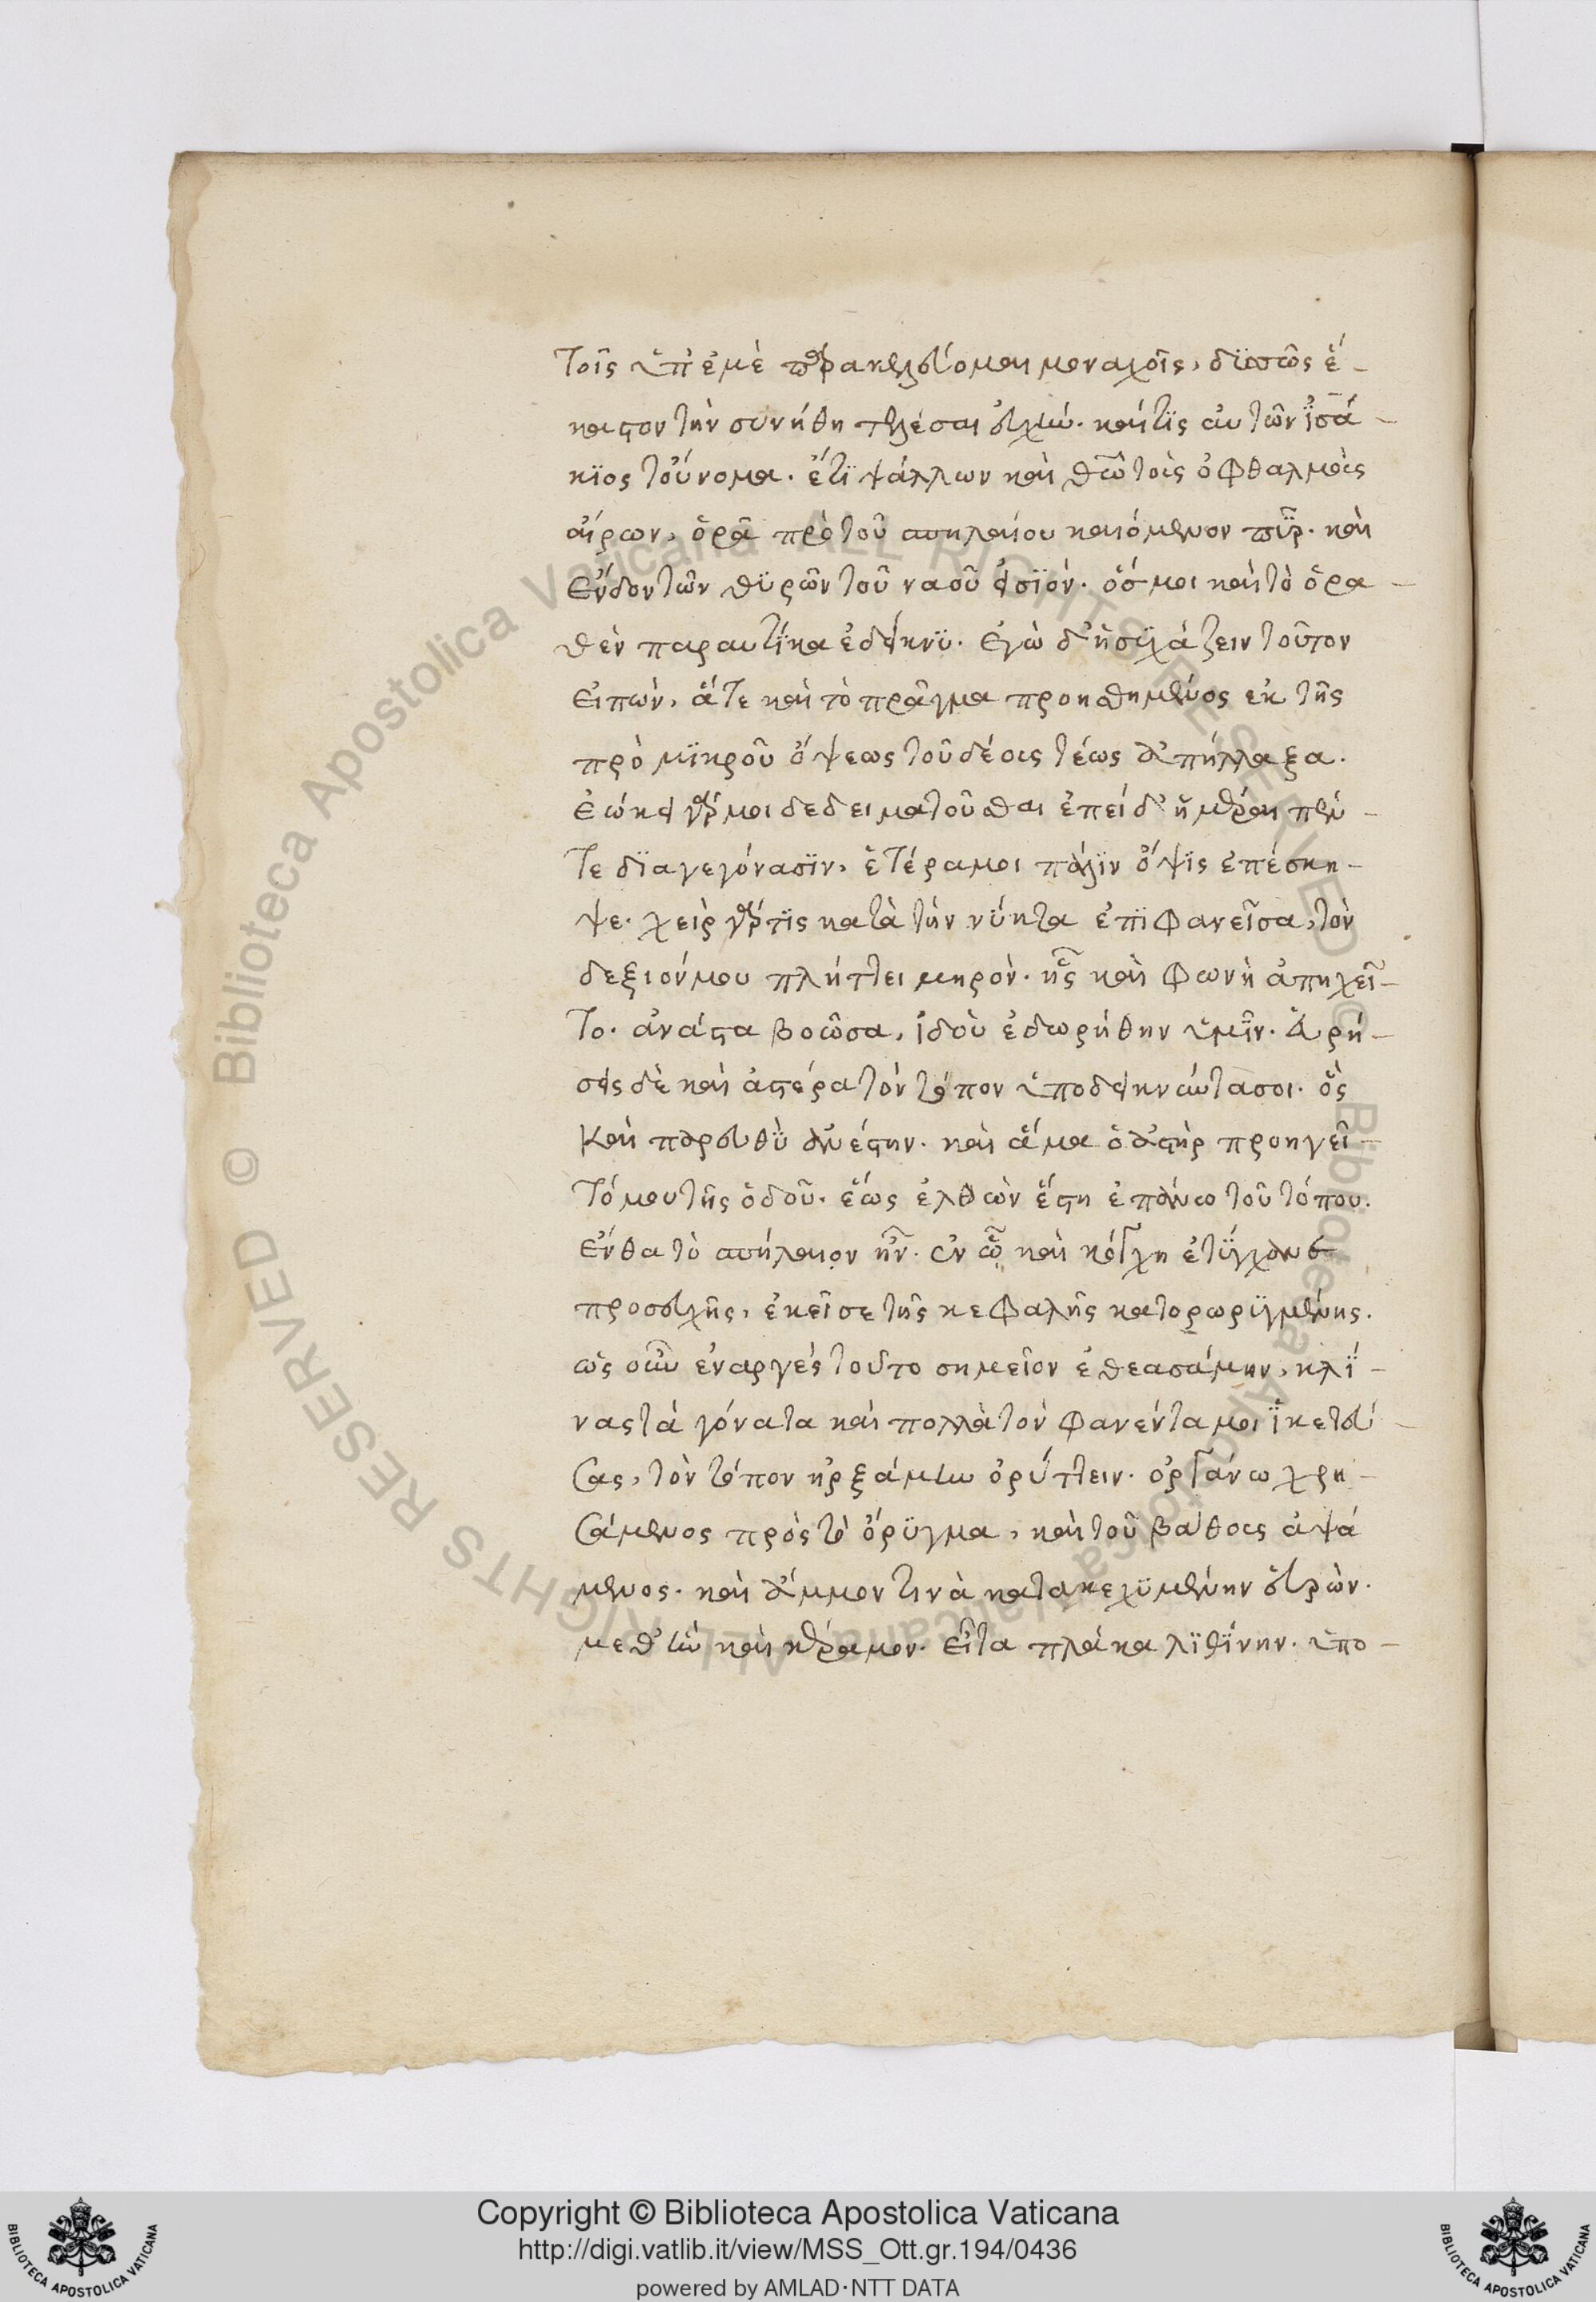 τοῖς ὑπ' ἐμὲ παρακελεύομαι μοναχοῖς, δϊαπῶς ἕ-
καστον τὴν συνήθη τελέσαι εὐχήν. καί τϊς αὐτῶν ἰσά-
κϊος τοὔνομα. ἔτϊ ψάλλων καὶ θεῶ τοὺς ὀφθαλμοὺς
αἴρων, ὁρᾶ πρὸ τοῦ σπηλαίου καιόμενον πῦρ. καὶ
ἔνδον τῶν θϋρῶν τοῦ ναοῦ εἰσϊόν. ὅς μοι καὶ τὸ ὁρα-
θὲν παραυτίκα ἐδείκνϋ. ἐγὼ δ' ἡσϋχάζειν τοῦτον
εἰπὼν, ἅτε καὶ τὸ πρᾶγμα προηθημένος ἐκ τῆς
πρὸ μϊκροῦ ὄψεως τοῦ δέους τέως ἀπήλλαξα.
ἐώκει γάρ μοι δεδειματοῦσθαι ἐπεί δ' ἡμέραι πέν-
τε δϊαγεγόνασϊν, ἑτέρα μοι πάλϊν ὄψϊς ἐπέσκη-
ψε. χεὶρ γάρ τϊς κατὰ τὴν νύκτα ἐπϊφανεῖσα, τὸν
δεξιόν μου πλήττει μηρὸν. ἧς καὶ φωνὴ ἀπηχεῖ-
το. ἀνάστα βοῶσα, ἰδοὺ ἐδωρήθην ὑμῖν. ἀρή-
σεις δὲ καὶ ἀστέρα τὸν τόπον ὑποδεικνύντα σοι. ὃς
καὶ παρευθὺ ἀνέστην. καὶ ἅμα ὁ ἀστὴρ προηγεῖ-
τό μου τῆς ὁδοῦ. ἕως ἐλθὼν ἔστη ἐπάνω τοῦ τόπου.
ἔνθα τὸ σπήλαιον ἦν. ἐν ᾧ καὶ κόγχη ἐτύγχανε
προσευχῆς, ἐκεῖσε τῆς κεφαλῆς κατορωρϋγμένης.
ὡς οὖν ἐναργὲς τοῦτο σημεῖον ἐθεασάμην, κλί-
νας τὰ γόνατα καὶ πολλὰ τὸν φανέντα μοι ἱκετεύ-
σας, τὸν τόπον ἠρξάμην ὀρύττειν. ὀργάνω χρη-
σάμενος πρὸς τὸ ὄρϋγμα, καὶ τοῦ βάθους ἁψά
μενος. καὶ ἄμμον τινὰ κατακεχϋμένην εὑρὼν.
μεθ' ἣν καὶ κέραμον. εἶτα πλάκα λϊθίνην. ὑπο-
Copyright © Biblioteca Apostolica Vaticana
http://digi.vatlib.it/view/MSS_Ott.gr.194/0436
powered by AMLAD·NTT DATA